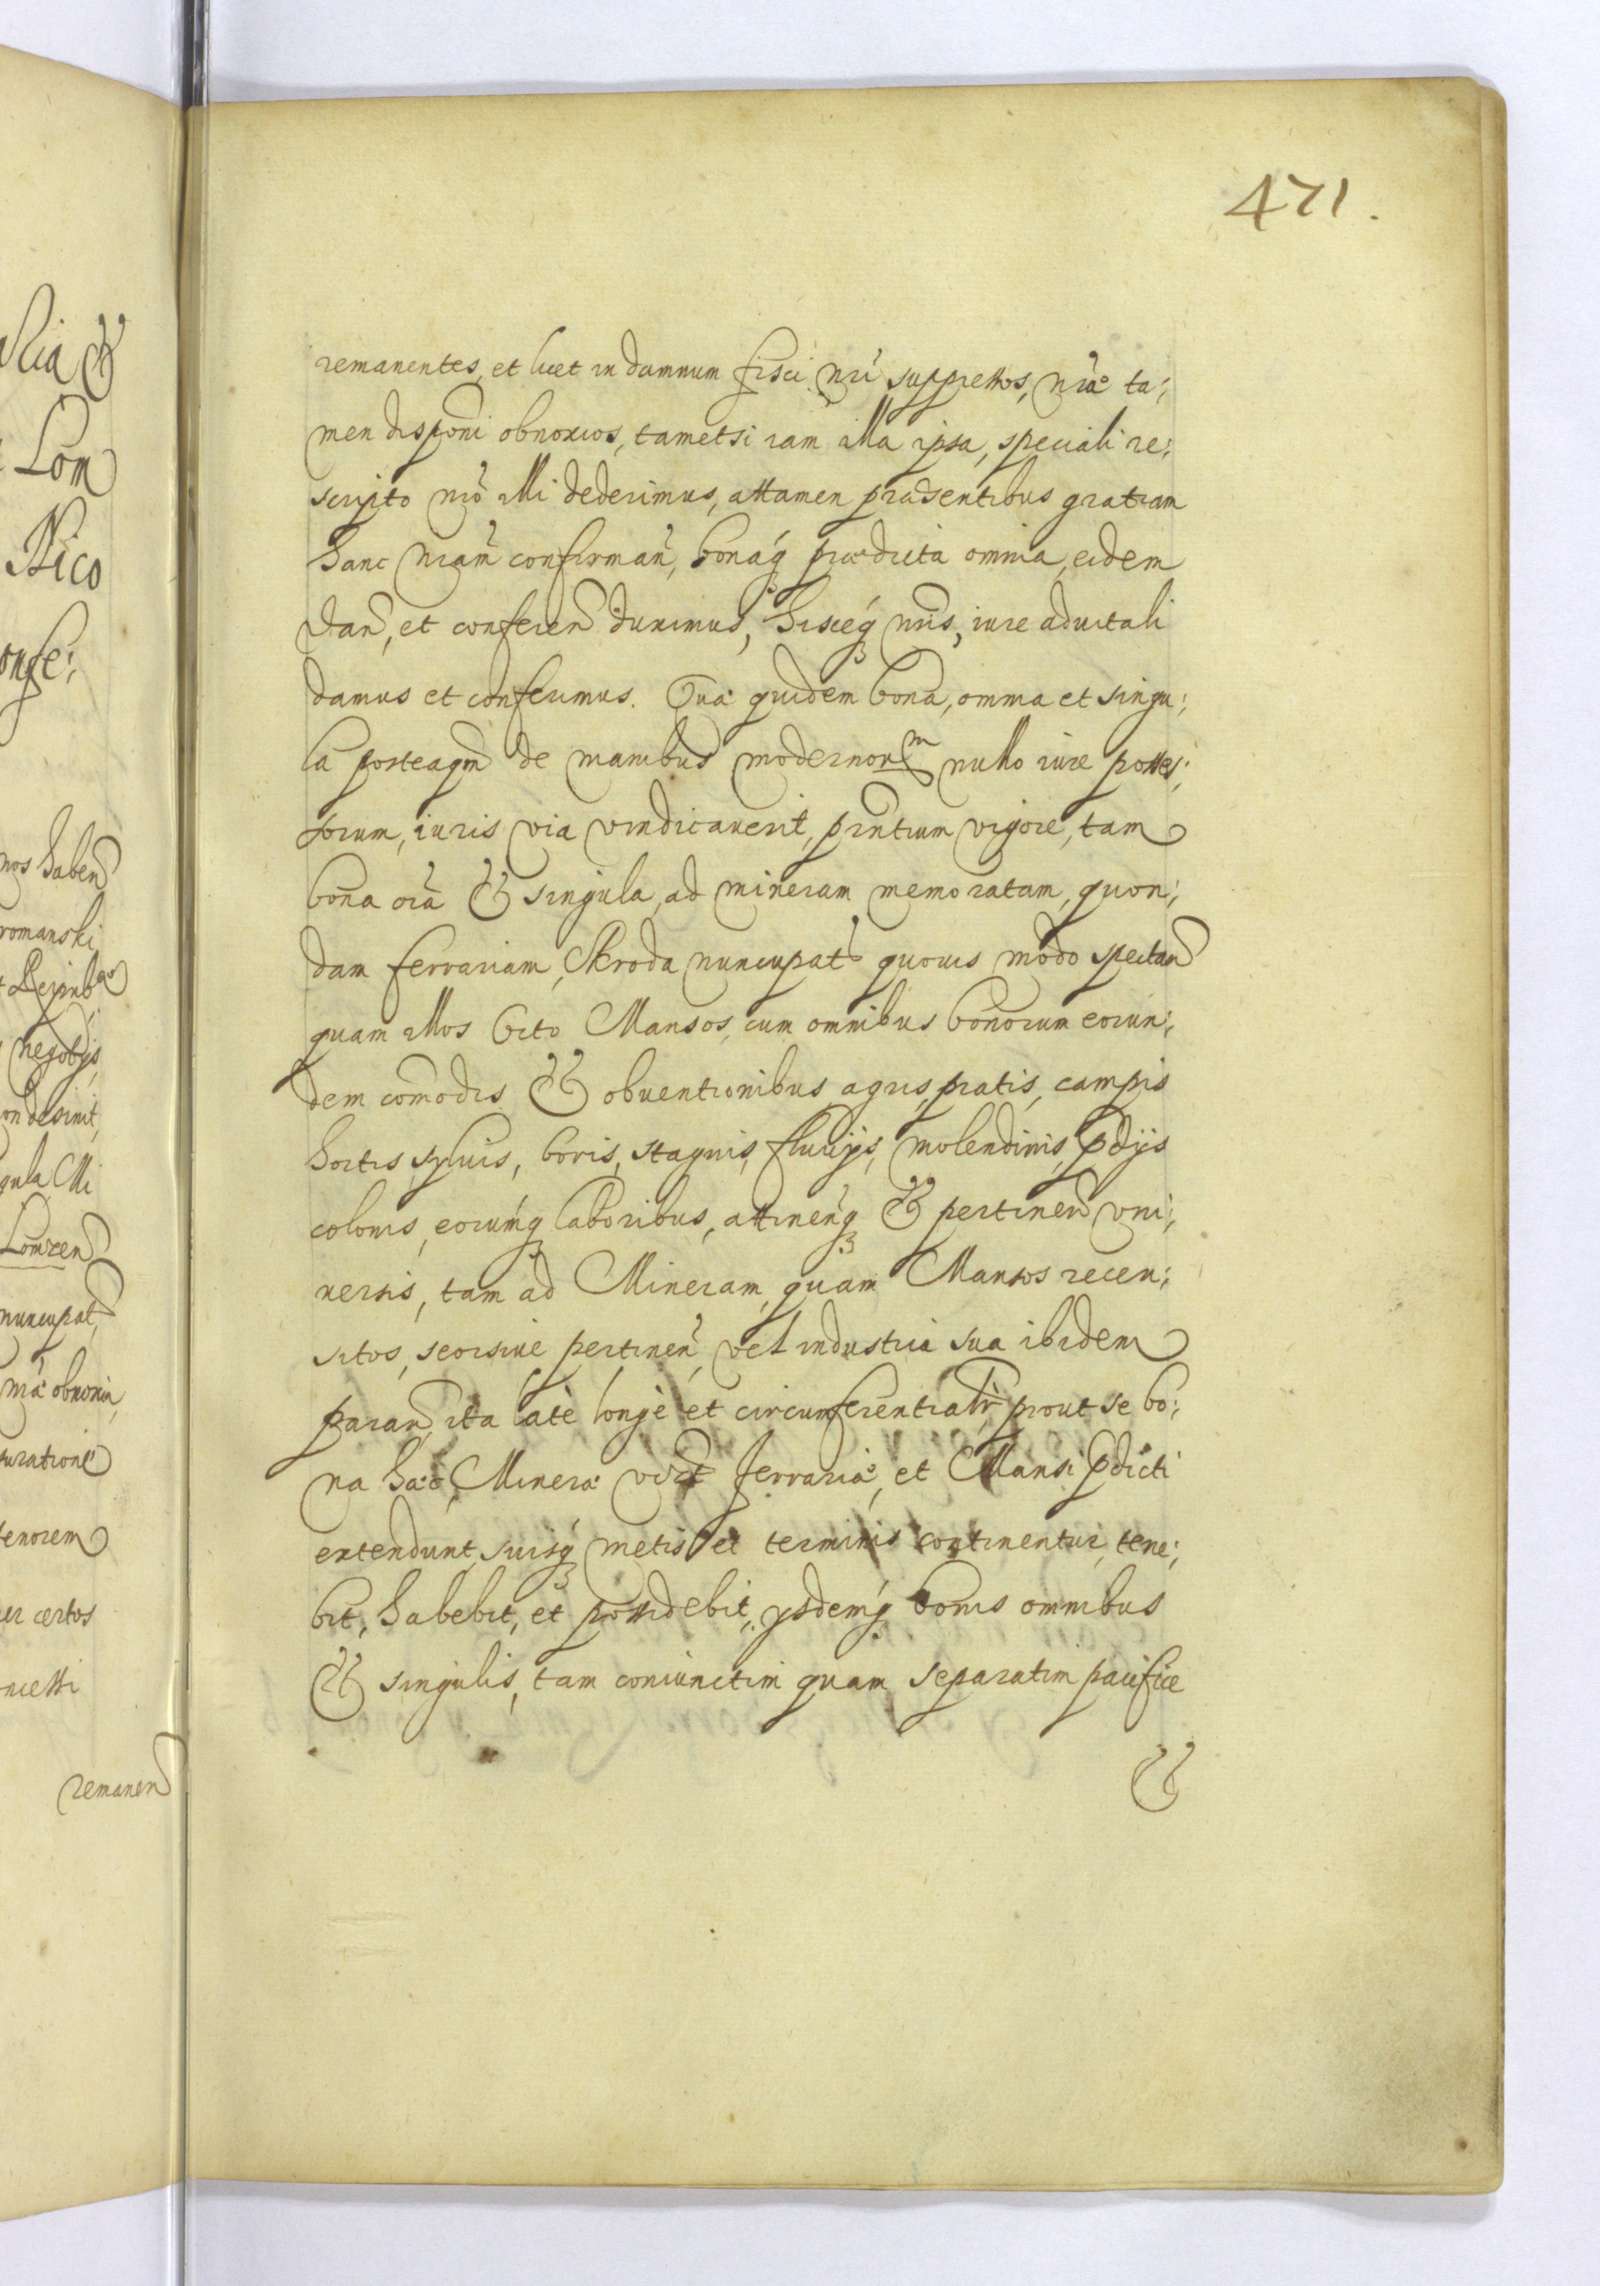 471.
remanentes, et licet in damnum fisci nri suppressos, nrae ta:
men dispōni obnoxios, tametsi iam illa ipsa, speciali re:
scripto nrō illi dederimus, attamen praesentibus gratiam
hanc nram confirman, bonaq praedicta omnia, eidem
dan, et conferen duximus, hisceq nris, iure advitali
damus et conferimus. Quae quidem bona, omnia et singu:
la posteaqm de manibus modernorum nullo iure posses:
sorum, iuris via vindicaverit, pntium vigore, tam
bona oīa & singula, ad mineram memoratam, quon:
dam ferrariam, Skroda nuncupat quovis modo spectan
quam illos octo Mansos, cum omnibus bonorum eorun:
dem comodis & obventionibus, agris, pratis, campis
hortis, sylvis, boris, stagnis, fluvijs, molendinis, pdijs
colonis, eorumq laboribus, attinenq & pertinen vni:
versis, tam ad Mineram, quam Mansos recen:
sitos, seorsive pertinen, vel industria sua ibidem
paran, ita latè longè et circumferentialr, prout se bo:
na haec, Minera vidt ferraria, et Mansi pdicti
extendunt, suisq metis et terminis continentur, tene:
bit, habebit, et possidebit, ysdemq bonis omnibus
& singulis, tam coniunctim quam separatim pacifice
&
Lom
Nico
onfe:
nos haben
romanski
negotijs
on desinit,
gula, illi
nuncupat
nrae obnoxia,
uratione
tenorem
er certos
remanen